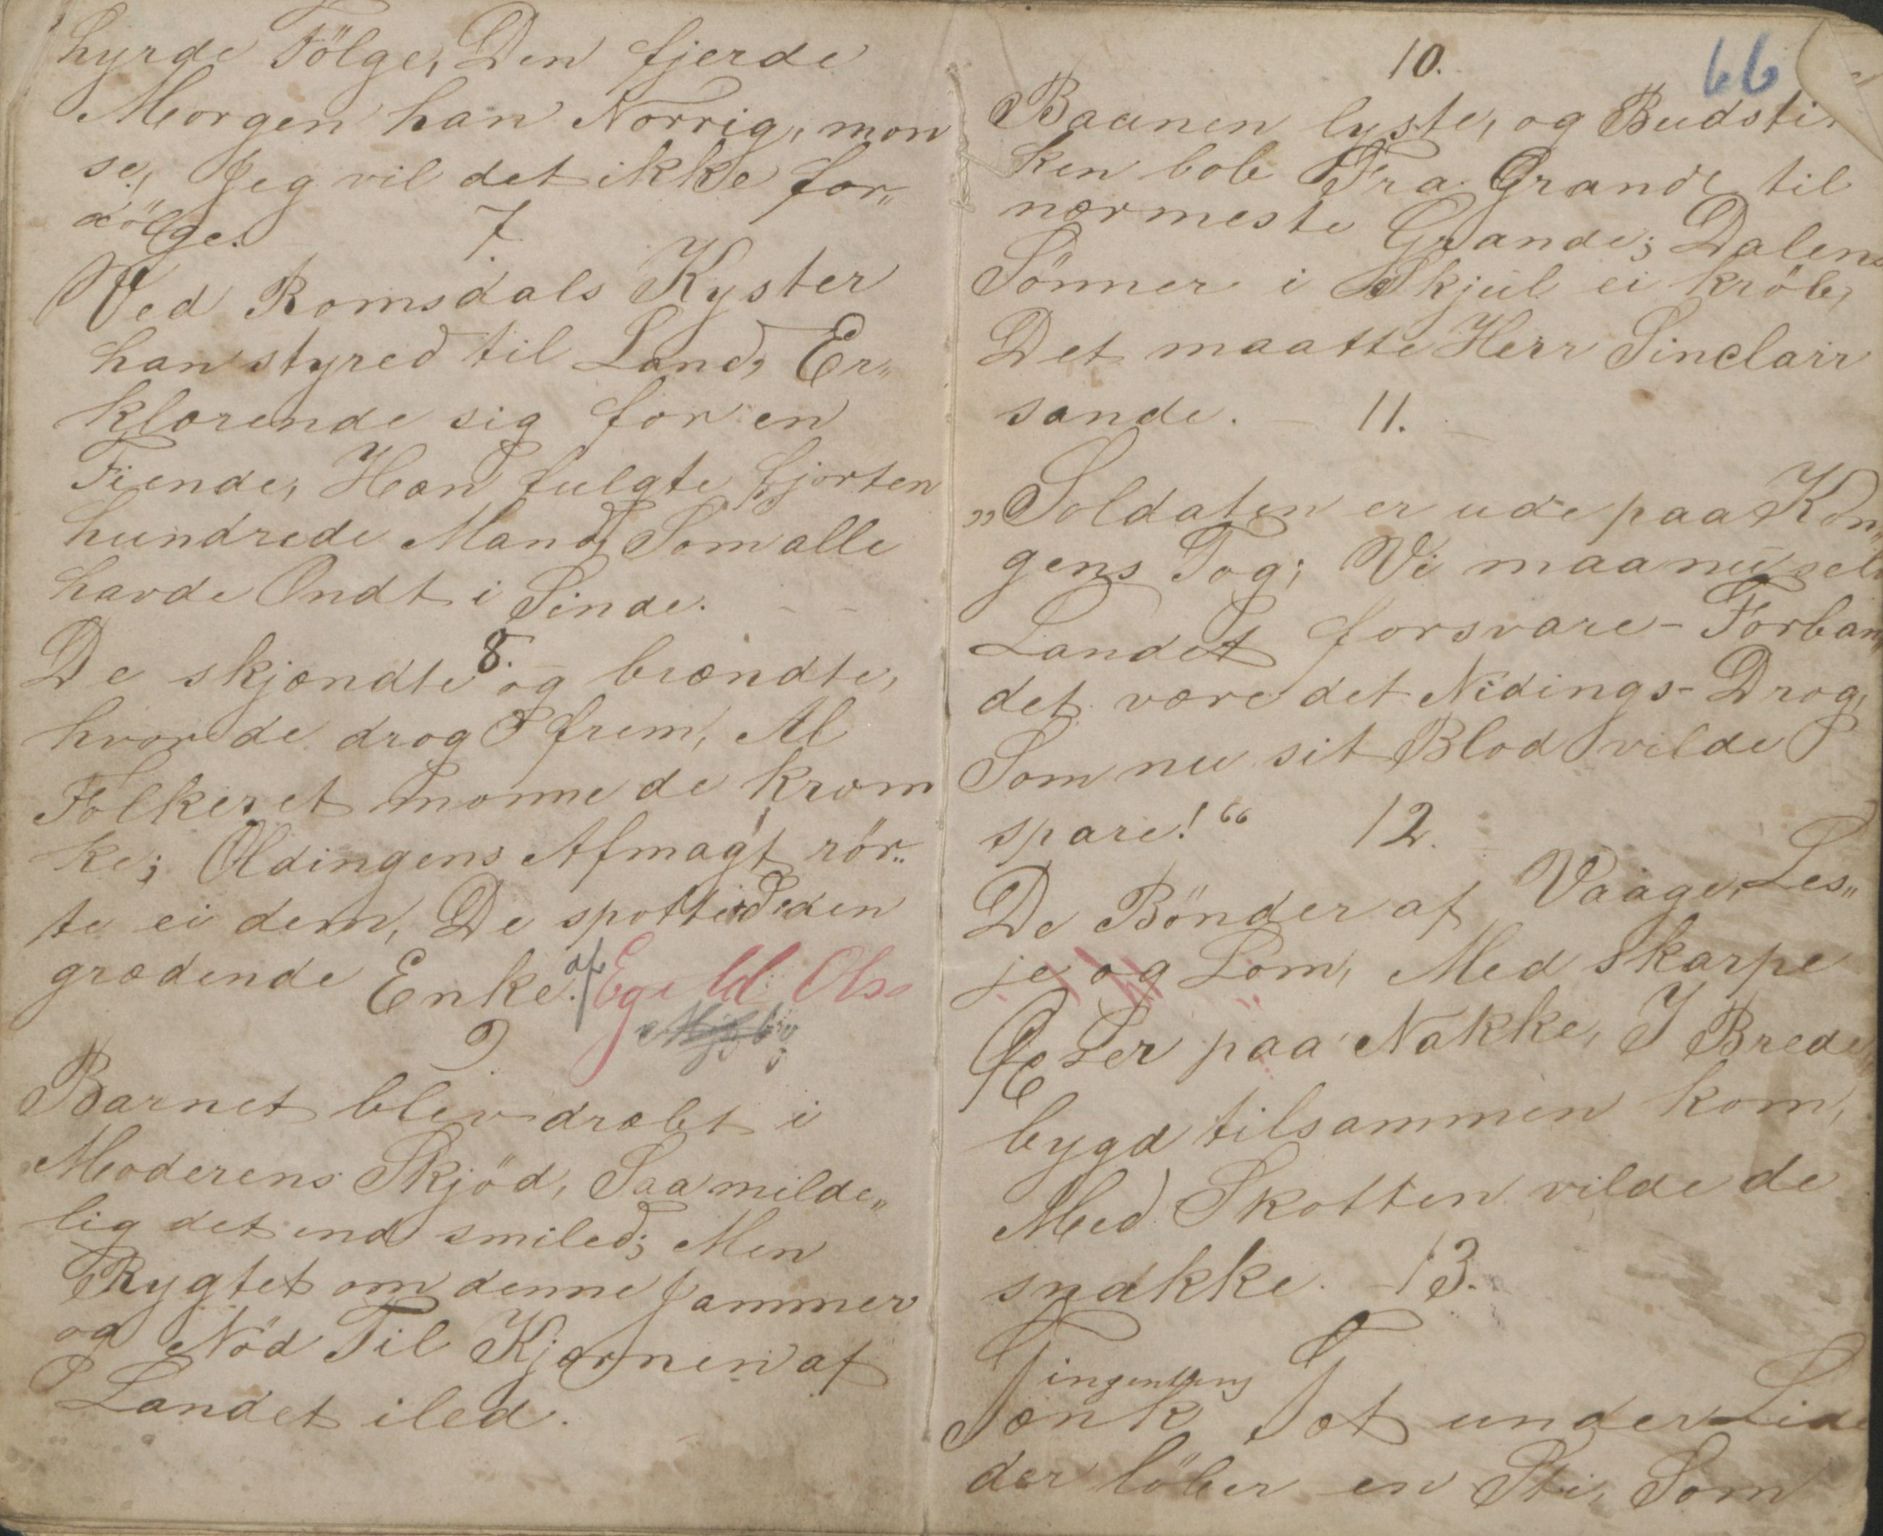 hyrde Fölge, Den fjerde
Morgen han Norrig, mon
se, Jeg vil det ikke for„
dölge.
7.
Ved Romsdals Kyster
han styred til Land, Er„
klærende sig for en
Fiende, Han fulgte fjorten
hundrede Mand Som alle
havde Ondt i Sinde.
8.
De skjændte og brændte,
hvor de drog frem, Al
Folkeret monne de kræn
ke; Oldingens Afmagt rör„
te ei dem, De spotted den
grædende Enke. af Egeld Ols
9
Barnet blev dræbt i
Moderens Skjöd, Saa milde„
lig det end smiled; Men
Rygtet om denne Jammer
og Nöd Til Kjærnen af
Landet iled.
66
10.
Baunen lyste, og Budsti
ken lob Fra Grande til
nærmeste Grande; Dalens
Sönner i Skjul ei kröb,
Det maatte Herr Sinclair
sande. 11.
„Soldaten er ude paa Kon„
gens Tog; Vi maa nu selv
Landet forsvare - Forban„
det være det Nidings-Drog,
Som nu sit Blod vilde
spare!“ 12.
De Bönder af Vaage, Les„
je og Lom, Med skarpe
Öxer paa Nakke, I Brede„
bygd tilsammen kom,
Med Skotten vilde de
snakke. 13.
Tæt under Lide
der löber en Sti, Som